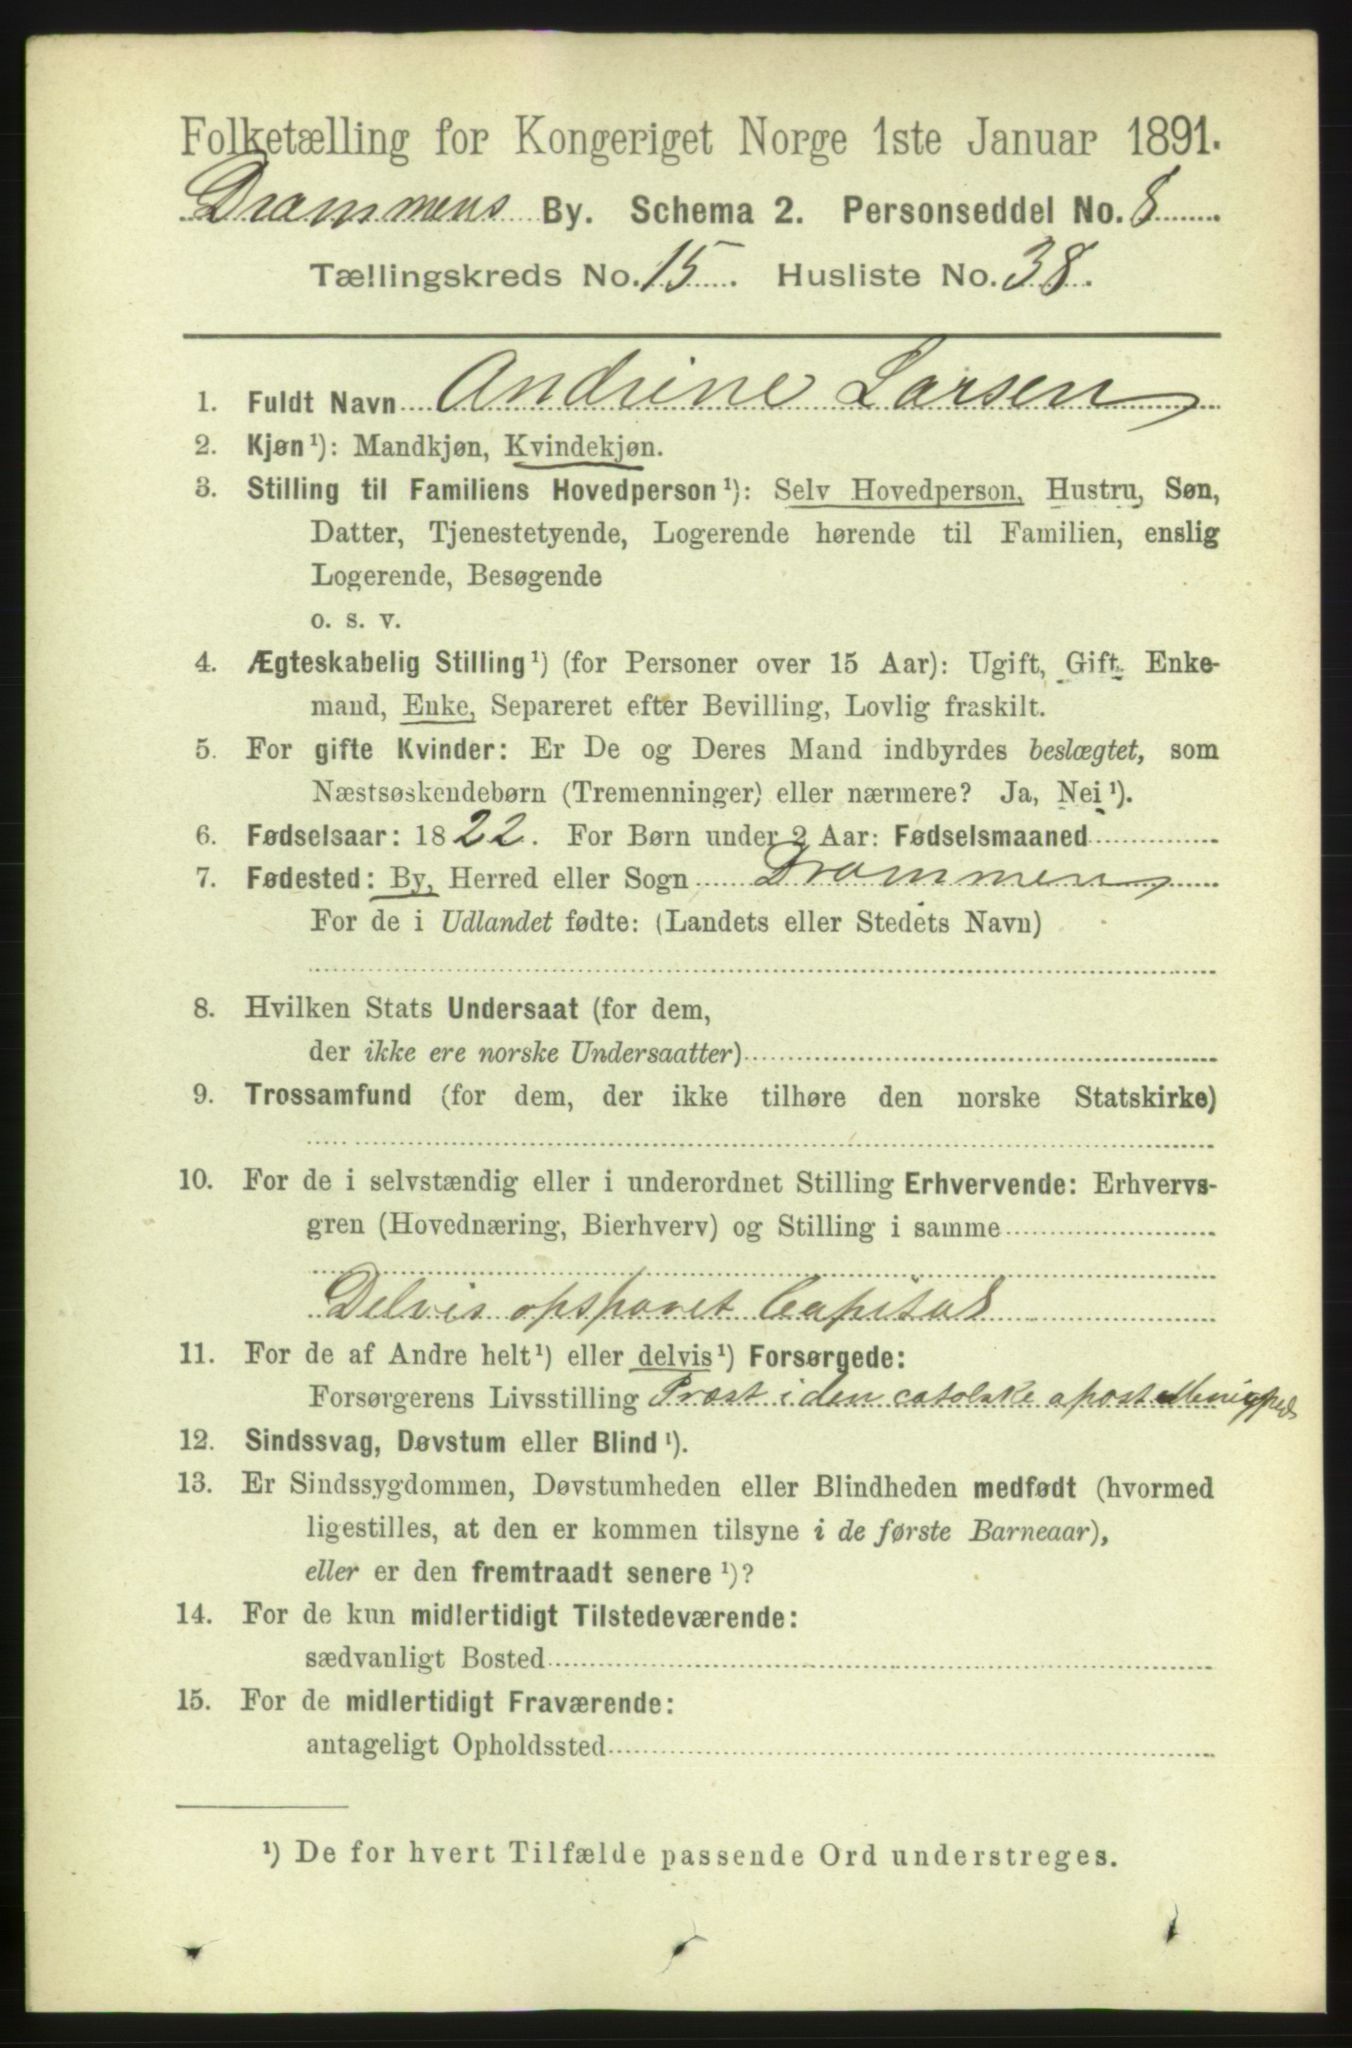 Folketælling for Kongeriget Norge 1ste Januar 1891.
Drammens By. Schema 2. Personseddel No. 8
Tællingskreds No. 15. Husliste No. 38.
1. Fuldt Navn Andrine Larsen
2. Kjøn¹): Mandkjøn, Kvindekjøn.
3. Stilling til Familiens Hovedperson¹): Selv Hovedperson, Hustru, Søn,
Datter, Tjenestetyende, Logerende hørende til Familien, enslig
Logerende, Besøgende
o. s. v.
4. Ægteskabelig Stilling¹) (for Personer over 15 Aar): Ugift, Gift, Enke-
mand, Enke, Separeret efter Bevilling, Lovlig fraskilt.
5. For gifte Kvinder: Er De og Deres Mand indbyrdes beslægtet, som
Næstsøskendebørn (Tremenninger) eller nærmere? Ja, Nei¹).
6. Fødselsaar: 1822. For Børn under 2 Aar: Fødselsmaaned
7. Fødested: By, Herred eller Sogn Drammen
For de i Udlandet fødte: (Landets eller Stedets Navn)
8. Hvilken Stats Undersaat (for dem,
der ikke ere norske Undersaatter)
9. Trossamfund (for dem, der ikke tilhøre den norske Statskirke)
10. For de i selvstændig eller i underordnet Stilling Erhvervende: Erhvervs-
gren (Hovednæring, Bierhverv) og Stilling i samme
Delvis opsparet Capital
11. For de af Andre helt¹) eller delvis¹) Forsørgede:
Forsørgerens Livsstilling Præst i den catolske apost Menighed
12. Sindssvag, Døvstum eller Blind¹).
13. Er Sindssygdommen, Døvstumheden eller Blindheden medfødt (hvormed
ligestilles, at den er kommen tilsyne i de første Barneaar),
eller er den fremtraadt senere¹)?
14. For de kun midlertidigt Tilstedeværende:
sædvanligt Bosted
15. For de midlertidigt Fraværende:
antageligt Opholdssted
¹) De for hvert Tilfælde passende Ord understreges.